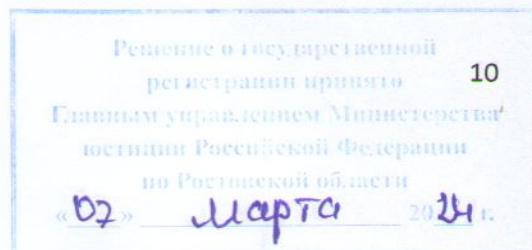 Решение о государственной
регистрации принято
10
Главным управлением Министерства
юстиции Российской Федерации
по Ростовской области
«07» марта 2024 г.